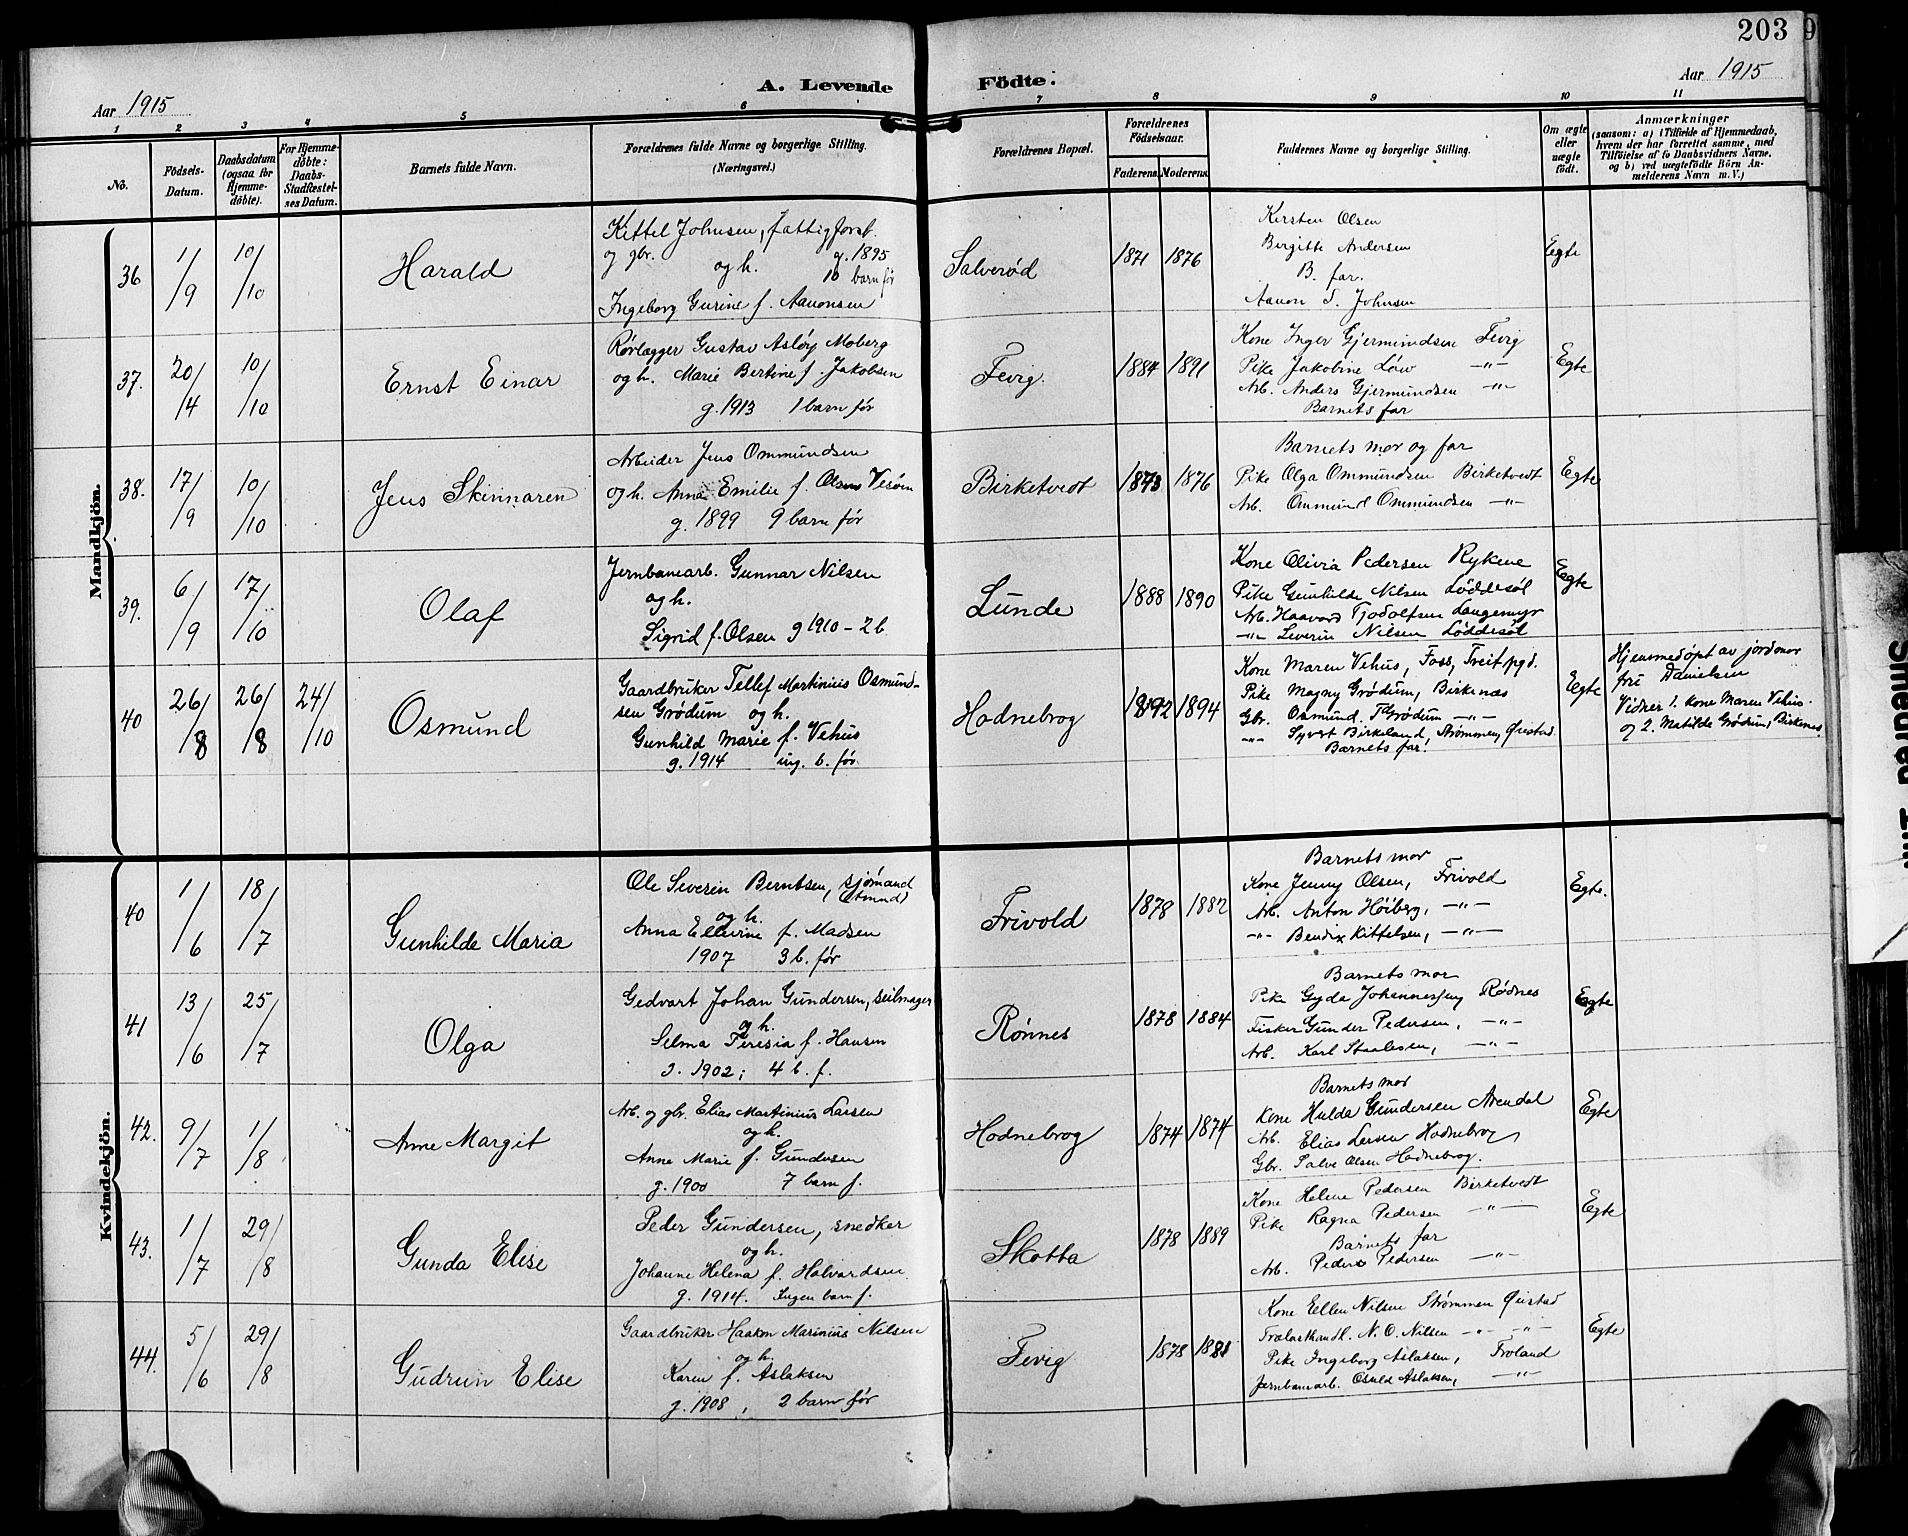 203 9
A. Levende Födte.
Aar 1915
Aar 1915
1 2 3 4 5 6 7 8 9 10 11
No.
Födsels-Datum.
Daabsdatum (ogsaa for Hjemme-döbte).
For Hjemme-döbte: Daabs-Stadfæstel-ses Datum.
Barnets fulde Navn.
Forældrenes fulde Navne og borgerlige Stilling.
(Næringsvei.)
Forældrenes Bopæl.
Forældrenes Födselsaar.
Faderens. Moderens.
Faddernes Navne og borgerlige Stilling.
Om ægte eller uægte födt.
Anmærkninger
(saasom: a) i Tilfælde af Hjemmedaab,
hvem der har forrettet samme, med
Tilföielse af to Daabsvidners Navne,
og b) ved uægtefödte Börn An-
melderens Navn m. V.)
Mandkjön.
36 1/9 10/10 Harald
Kittel Johnsen, fattigforst.
og gbr. g. 1895
og h. 10 barn før
Ingeborg Gurine f. Aanonsen
Salverød 1871 1876
Kirsten Olsen
Birgitte Andersen
B. far.
Aanon T. Johnsen
Egte
37. 20/4 10/10 Ernst Einar
Rørlægger Gustav Asløy Moberg
og h. Marie Bertine f. Jakobsen
g. 1913 1 barn før
Fevig. 1884 1891
Kone Inger Gjermundsen Fevig
Pike Jakobine Løw -"-
Arb. Anders Gjermundsen -"-
Barnets far
Egte
38. 17/9 10/10 Jens Skinnaren
Arbeider Jens Ommundsen
og h. Anna Emilie f. Olsen Verøin
g. 1899 9 barn før
Birketvedt 1873 1876
Barnets mor og far
Pike Olga Ommundsen Birketvedt
Arb. Ommund Ommundsen -"-
Egte
39. 6/9 17/10 Olaf
Jernbanearb. Gunnar Nilsen
og h.
Sigrid f. Olsen g 1910 - 2 b.
Lunde 1888 1890
Kone Olivia Pedersen Rykene
Pike Gunhilde Nilsen Løddesøl
Arb. Haavard Tjodolfsen Langemyr
-"- Severin Nilsen Løddesøl
Egte
40 26/8 26/8 24/10 Osmund
Gaardbruker Tellef Martinius Osmund-
sen Grødum og h.
Gunhild Marie f. Vehus
g. 1914 ing. b. før
Hodnebrog 1892 1894
Kone Maren Vehus, Foss, Treit pgd.
Pike Magny Grødum, Birkenæs
Gbr. Osmund T Grødum -"-
-"- Syvert Birkeland, Strømmen, Øiestad.
Barnets far.
Egte
Hjemmedøpt av jordmor
fru Danielsen
Vidner 1. Kone Maren Vehus
og 2. Matilde Grødum, Birkenes
Kvindekjön.
40 1/6 18/7 Gunhilde Maria
Ole Severin Berntsen, sjømand
og h.
Anna Ellevine f. Madsen
1907 3 b. før
Frivold 1878 1882
Barnets mor
Kone Jenny Olsen, Frivold
Arb. Anton Høiberg, -"-
-"- Bendix Kittelsen, -"-
Egte.
41 13/6 25/7 Olga
Gedvart Johan Gundersen, seilmager
og h.
Selma Teresia f. Hansen
g. 1902; 4 b. f.
Rønnes 1878 1884
Barnets mor
Pike Gyda Johannessen, Rødnes
Fisker Gunder Pedersen, -"-
Arb. Karl Staalesen, -"-
Egte
42. 9/7 1/8 Anne Margit
Arb. og gbr. Elias Martinius Larsen
og h.
Anne Marie f. Gundersen
g. 1900 7 barn f.
Hodnebrog 1874 1874
Barnets mor
Kone Hulda Gundersen Arendal
Arb. Elias Larsen Hodnebrog
Gbr. Salve Olsen Hodnebrog.
Egte
43. 1/7 29/8 Gunda Elise
Peder Gundersen, snedker
og h.
Johanne Helena f. Halvardsen
g. 1914. Ingen barn f.
Skotta 1878 1889
Kone Helene Pedersen Birketvedt
Pike Ragna Pedersen -"-
Barnets far
Arb. Peder Pedersen -"-
Egte
44. 5/6 29/8 Gudrun Elise
Gaardbruker Haakon Marinius Nilsen
og h.
Karen f. Aslaksen
g. 1908, 2 barn før
Fevig 1878 1881
Kone Ellen Nilsen Strømmen Øiestad
Trælasthandl. N. O. Nilsen -"- -"-
Pike Ingeborg Aslaksen, Froland
Jernbanearb. Osuld Aslaksen, -"-
Egte